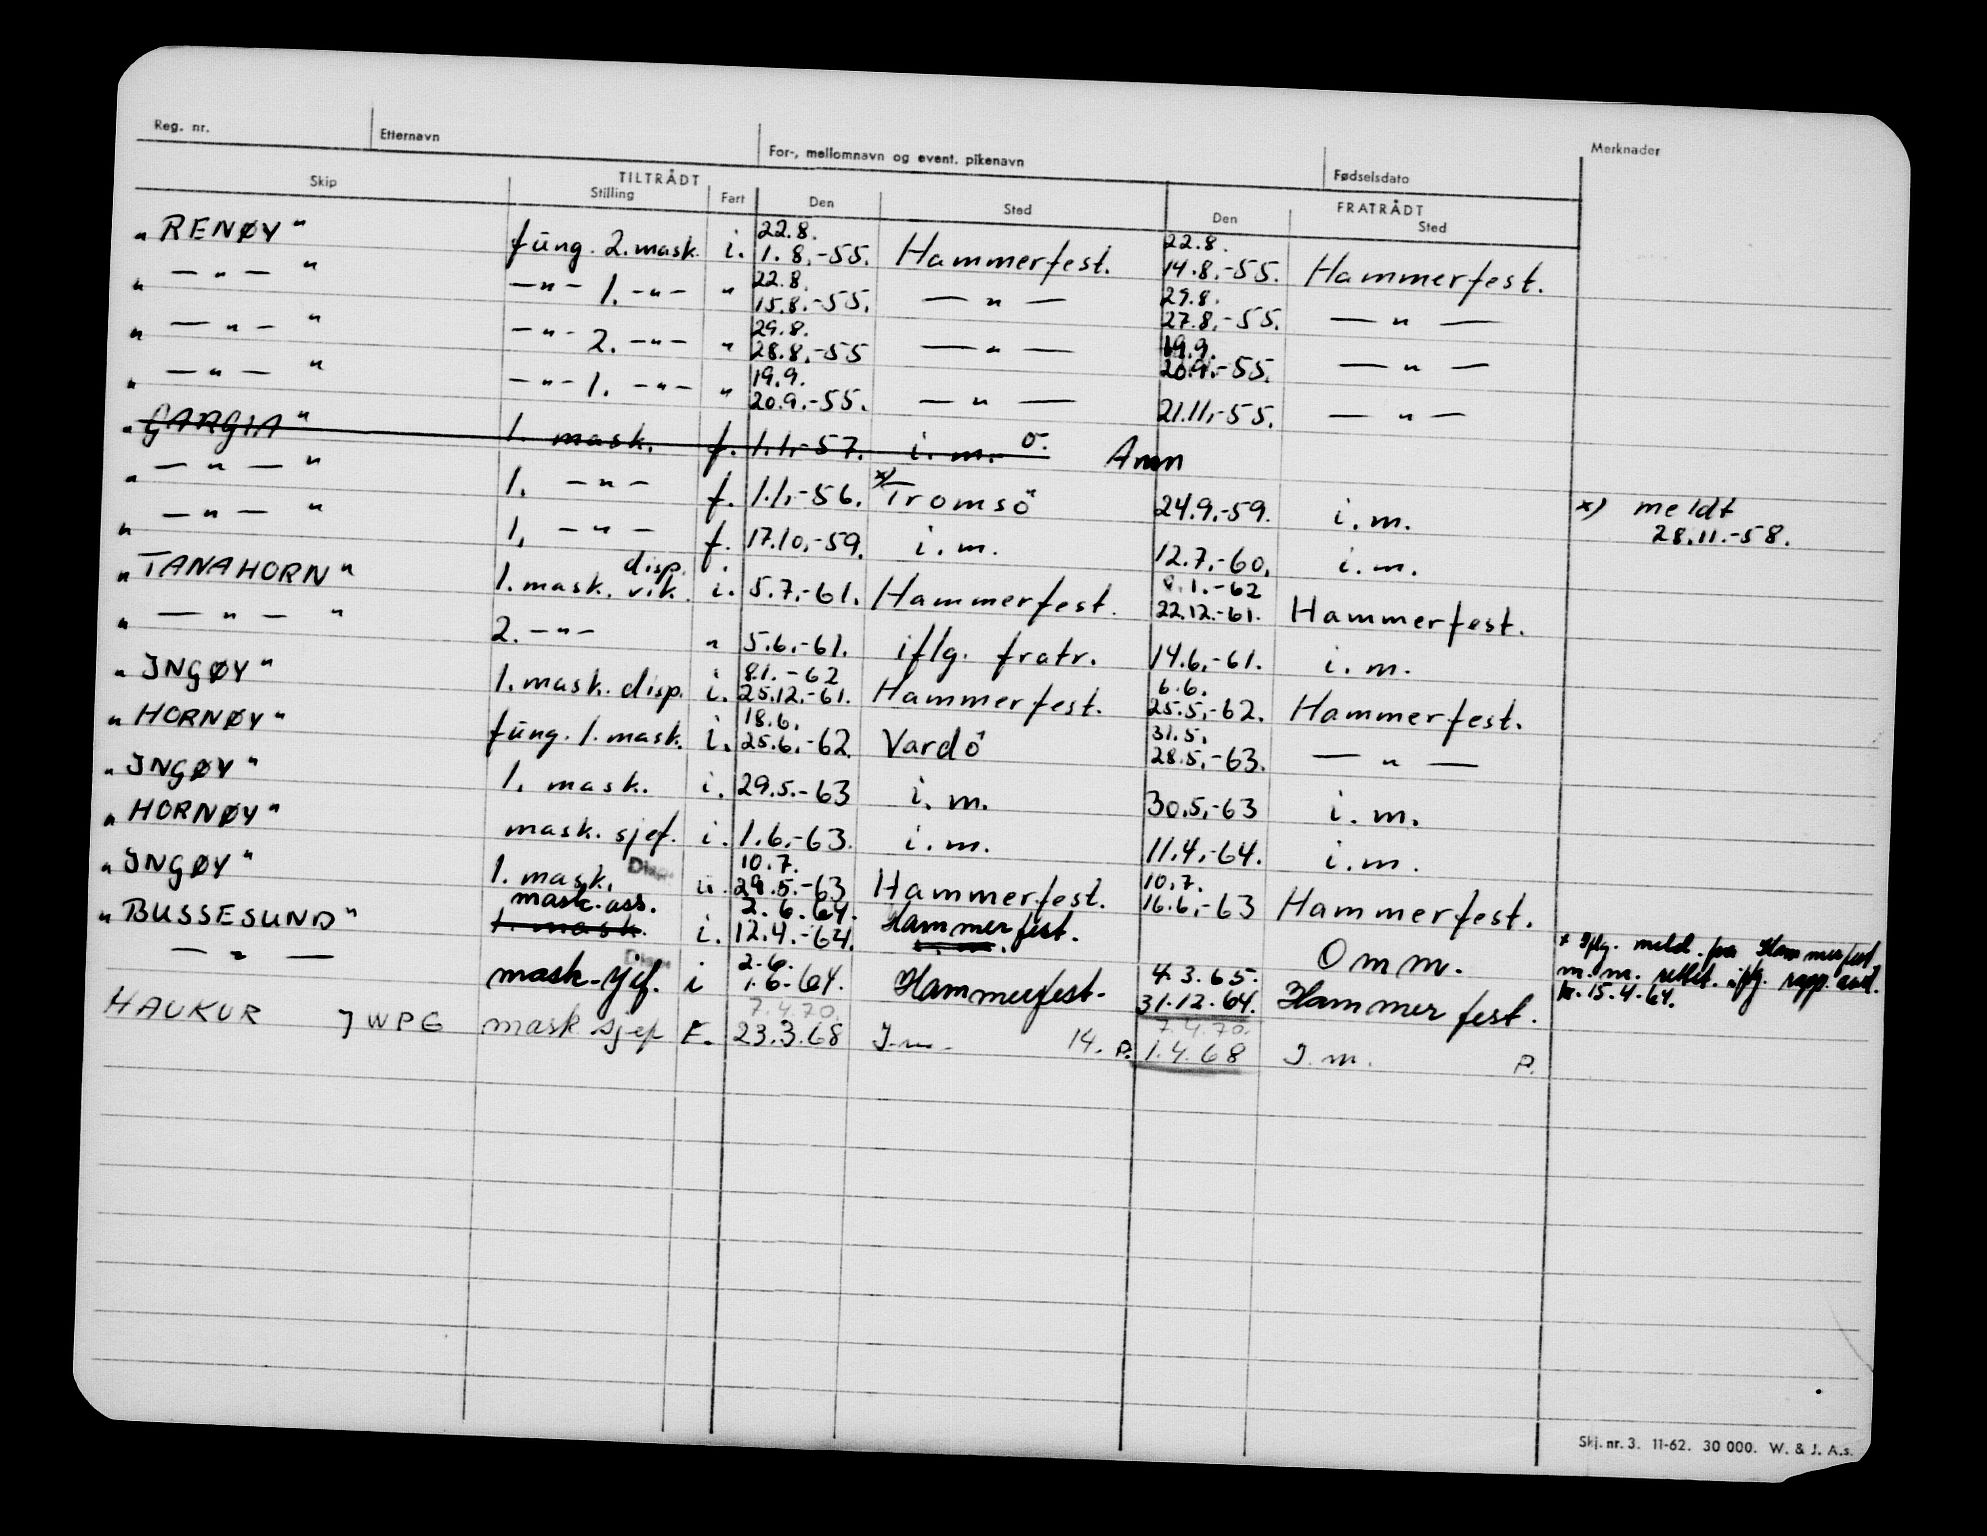 Reg. nr. Etternavn For-, mellomnavn og event. pikenavn Fødselsdato Merknader
TILTRÅDT FRATRÅDT
Skip Stilling Fart Den Sted Den Sted
22.8. 22.8.
„ RENØY " füng. 2. mask. i. 1.8.-55. Hammerfest. 14.8.-55. Hammerfest.
22.8. 29.8.
„ — " — " —"— 1. —"— " 15.8.-55. — " — 27.8.-55. — " —
29.8. 19.9.
„ — " — " —"— 2. —"— " 28.8.-55 — " — 20.9.-55. — " —
19.9.
„ — " — " —"— 1. —"— " 20.9.-55. — " — 21.11.-55. — " —
„ GARGIA " 1. mask. f. 1.1.-57. i. m. o. Ann
„ — " — " 1. — " — f. 1.1.-56. x) Tromsö 24.9.-59. i. m. x) meldt
28.11.-58.
„ — " — " 1. — " — f. 17.10.-59. i. m. 12.7.-60. i. m.
disp. 8.1.-62
„ TANAHORN " 1. mask. vik. i. 5.7.-61. Hammerfest. 22.12.-61. Hammerfest.
„ — " — " 2. —"— " 5.6.-61. iflg. fratr. 14.6.-61. i. m.
8.1.-62 6.6.
„ INGØY " 1. mask. disp. i. 25.12.-61. Hammerfest. 25.5.-62. Hammerfest.
18.6. 31.5.
„ HORNØY " füng. 1. mask. i. 25.6.-62 Vardö 28.5.-63. — " —
„ INGØY " 1. mask. i. 29.5.-63 i. m. 30.5.-63 i. m.
„ HORNØY " mask. sjef. i. 1.6.-63. i. m. 11.4.-64. i. m.
Disp. 10.7. 10.7.
„ INGØY " 1. mask. i. 29.5.-63 Hammerfest. 16.6.-63 Hammerfest.
mask. ass. 2.6.64. Hammerfest.
„ BUSSESUND " 1. mask. i. 12.4.-64. i. m. Omm. x Iflg. meld. fra Hammerfest
m. m. rettet. iflg. rapp. avd.
kr. 15.4.64.
Disp. 2.6. 4.3.65.
— " — mask. sjef. i 1.6.64. Hammerfest. 31.12.64. Hammerfest.
7.4.70. 7.4.70.
HAUKUR JWPG mask sjef F. 23.3.68 I. m. 14. P. 1.4.68 I. m. P.
Skj. nr. 3. 11-62. 30 000. W. & J. A.s.